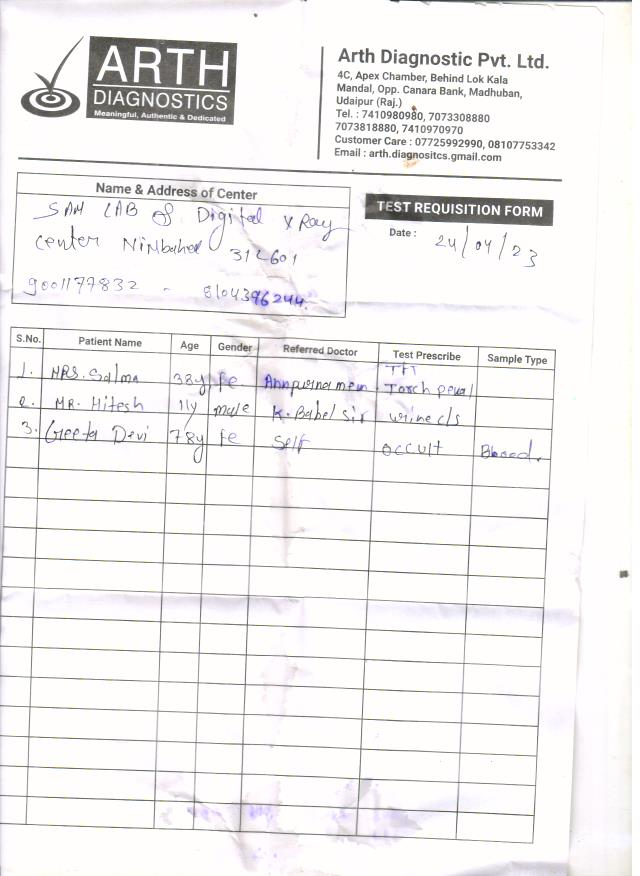 ARTH
DIAGNOSTICS
Meaningful, Authentic & Dedicated
Arth Diagnostic Pvt. Ltd.
4C, Apex Chamber, Behind Lok Kala
Mandal, Opp. Canara Bank, Madhuban,
Udaipur (Raj.)
Tel. : 7410980980, 7073308880
7073818880, 7410970970
Customer Care : 07725992990, 08107753342
Email : arth.diagnositcs.gmail.com
Name & Address of Center
SAM LAB of Digital X Ray
Center Nimbahed 312601
9001177832 - 8104396244
TEST REQUISITION FORM
Date : 24/04/23
S.No. Patient Name Age Gender Referred Doctor Test Prescribe Sample Type
1. MRS. Salma 38y fe. Annpurna mem Torch penal
2. MR. Hitesh 11y male K. Babel sir urine c/s
3. Geeta Devi 78y fe Self occult Blood.